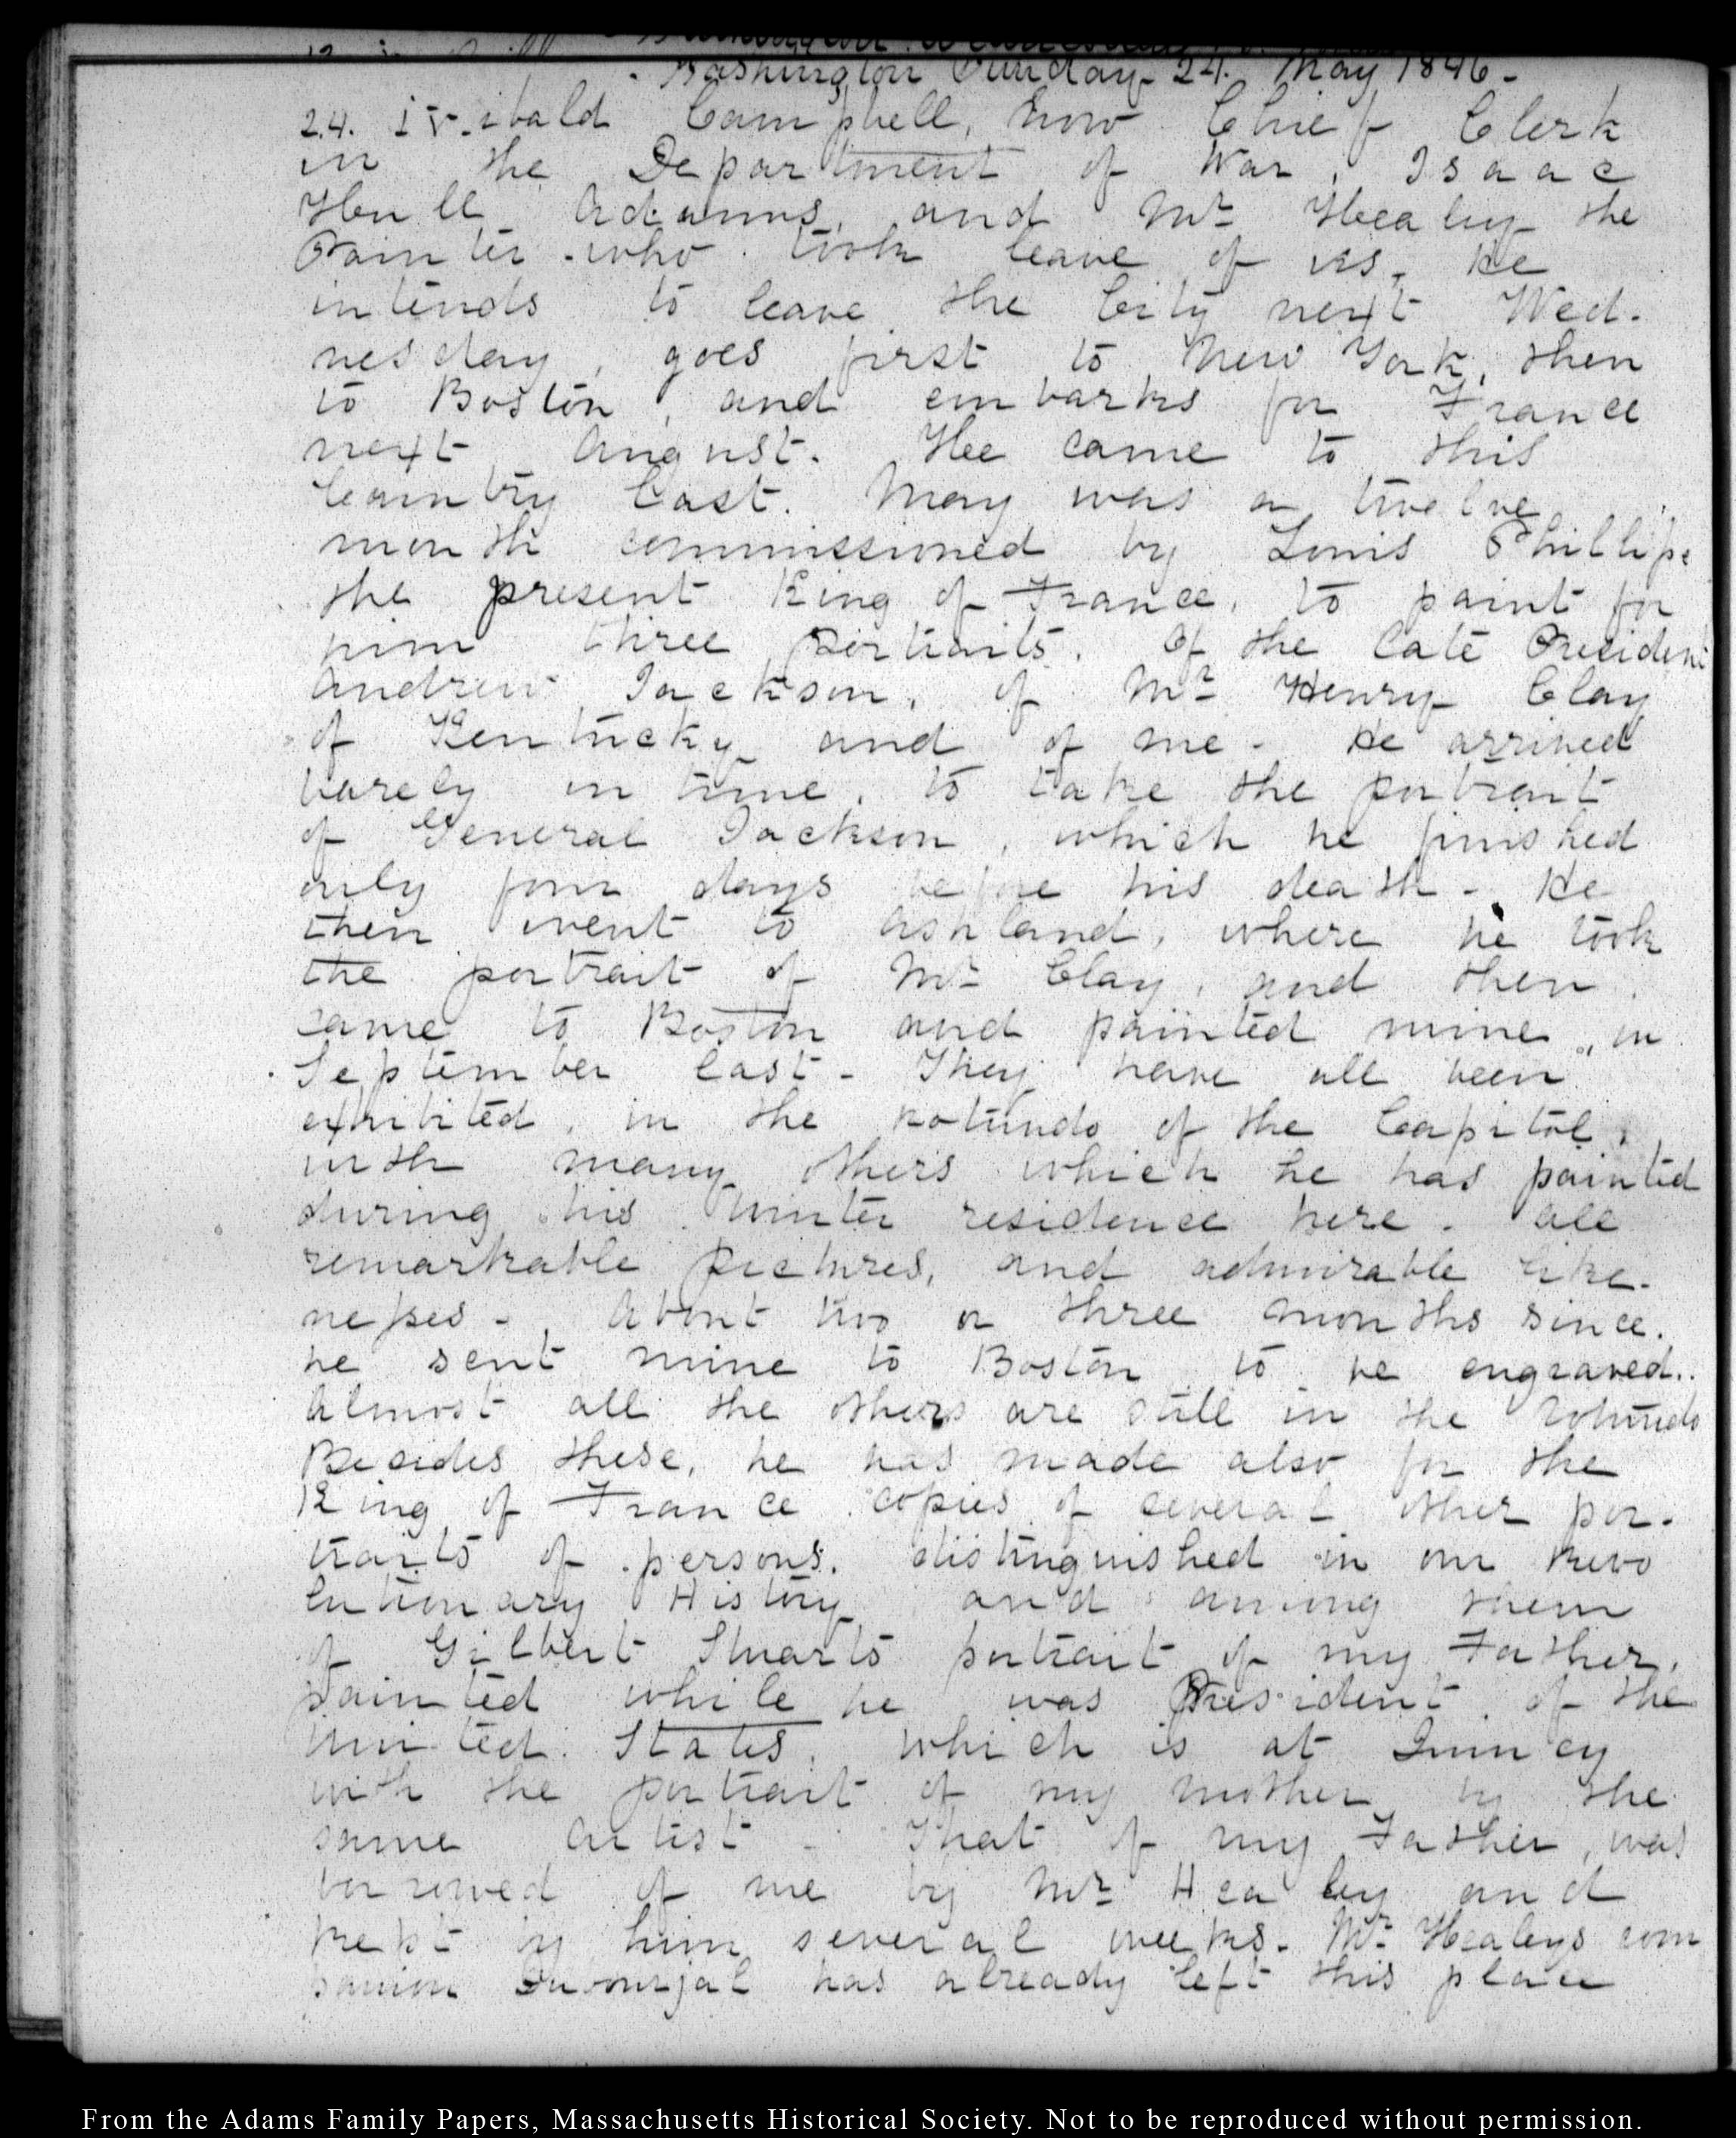 Washington Sunday 24. May 1846-
24. IV. ibald Campbell, now Chief Clerk
in the Department of War, Isaac
Hull Adams, and Mr Healey the
Painter who took leave of us, he
intends to leave the City next Wed-
nesday, goes first to New York, then
to Boston, and embarks for France
next August. Hee came to this
Country last May was a twelve
month commissioned by Louis Phillipe
the present King of France, to paint for
him three portraits. Of the late President
Andrew Jackson, of Mr Henry Clay
of Kentucky and of me - He arrived
barely in time, to take the portrait
of General Jackson, which he finished
only four days before his death - He
then went to Ashland, where he took
the portrait of Mr Clay, and then
came to Boston and painted mine, in
September last - They have all been
exhibited, in the rotundo of the Capitol,
with many others which he has painted
during his Winter residence here. all
remarkable pictures, and admirable like-
nesses - About two or three months since.
he sent mine to Boston to be engraved.
Almost all the others are still in the rotundo
Besides these, he has made also for the
King of France copies of several other por-
traits of persons, distinguished in our Revo
lutionary History and among them
of Gilbert Stuarts portrait of my Father,
painted while he was President of the
United States, which is at Quincy
with the portrait of my mother by the
same Artist - That of my Father, was
borrowed of me by Mr Healey and
kept by him several weeks. Mr Healeys com
panion has already left this place
From the Adams Family Papers, Massachusetts Historical Society. Not to be reproduced without permission.